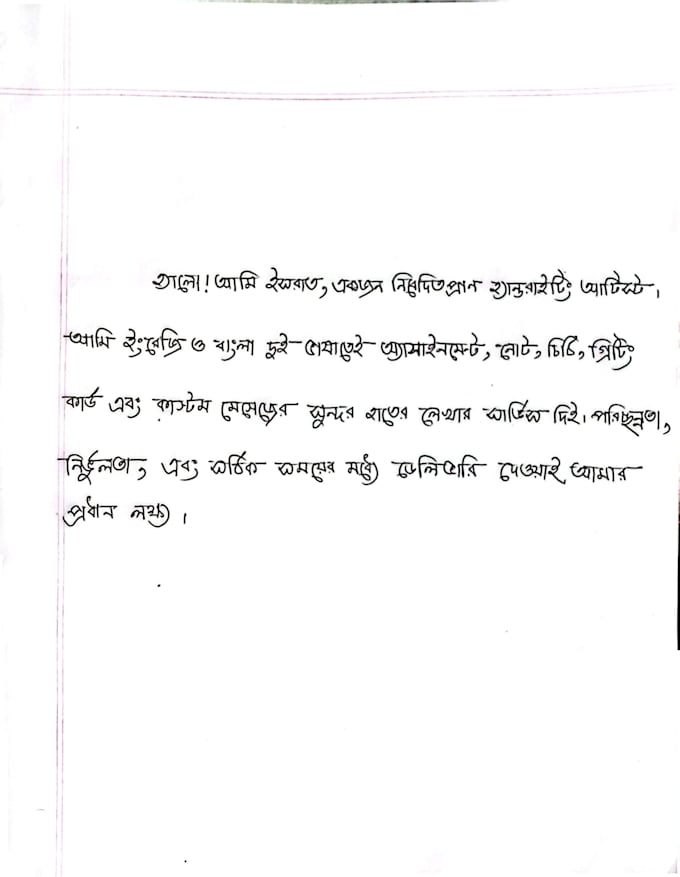 হ্যালো! আমি ইসরাত, একজন নিবেদিতপ্রাণ হ্যান্ডরাইটিং আর্টিস্ট।
আমি ইংরেজি ও বাংলা দুই ভাষাতেই অ্যাসাইনমেন্ট, নোট, চিঠি, গ্রিটিং
কার্ড এবং কাস্টম মেসেজের সুন্দর হাতের লেখার সার্ভিস দিই। পরিচ্ছন্নতা,
নির্ভুলতা, এবং সঠিক সময়ের মধ্যে ডেলিভারি দেওয়াই আমার
প্রধান লক্ষ্য।